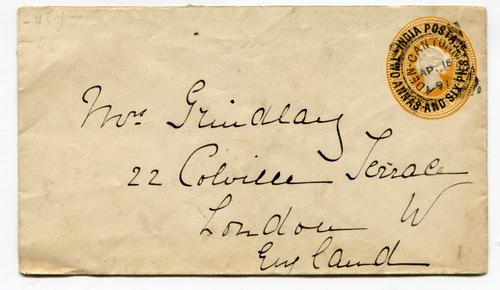 INDIA POSTAGE
TWO ANNAS AND SIX PIES
ADEN-CANTONMT
AP. 16
91
Mrs Grindlay
22 Colville Terrace
London W
England